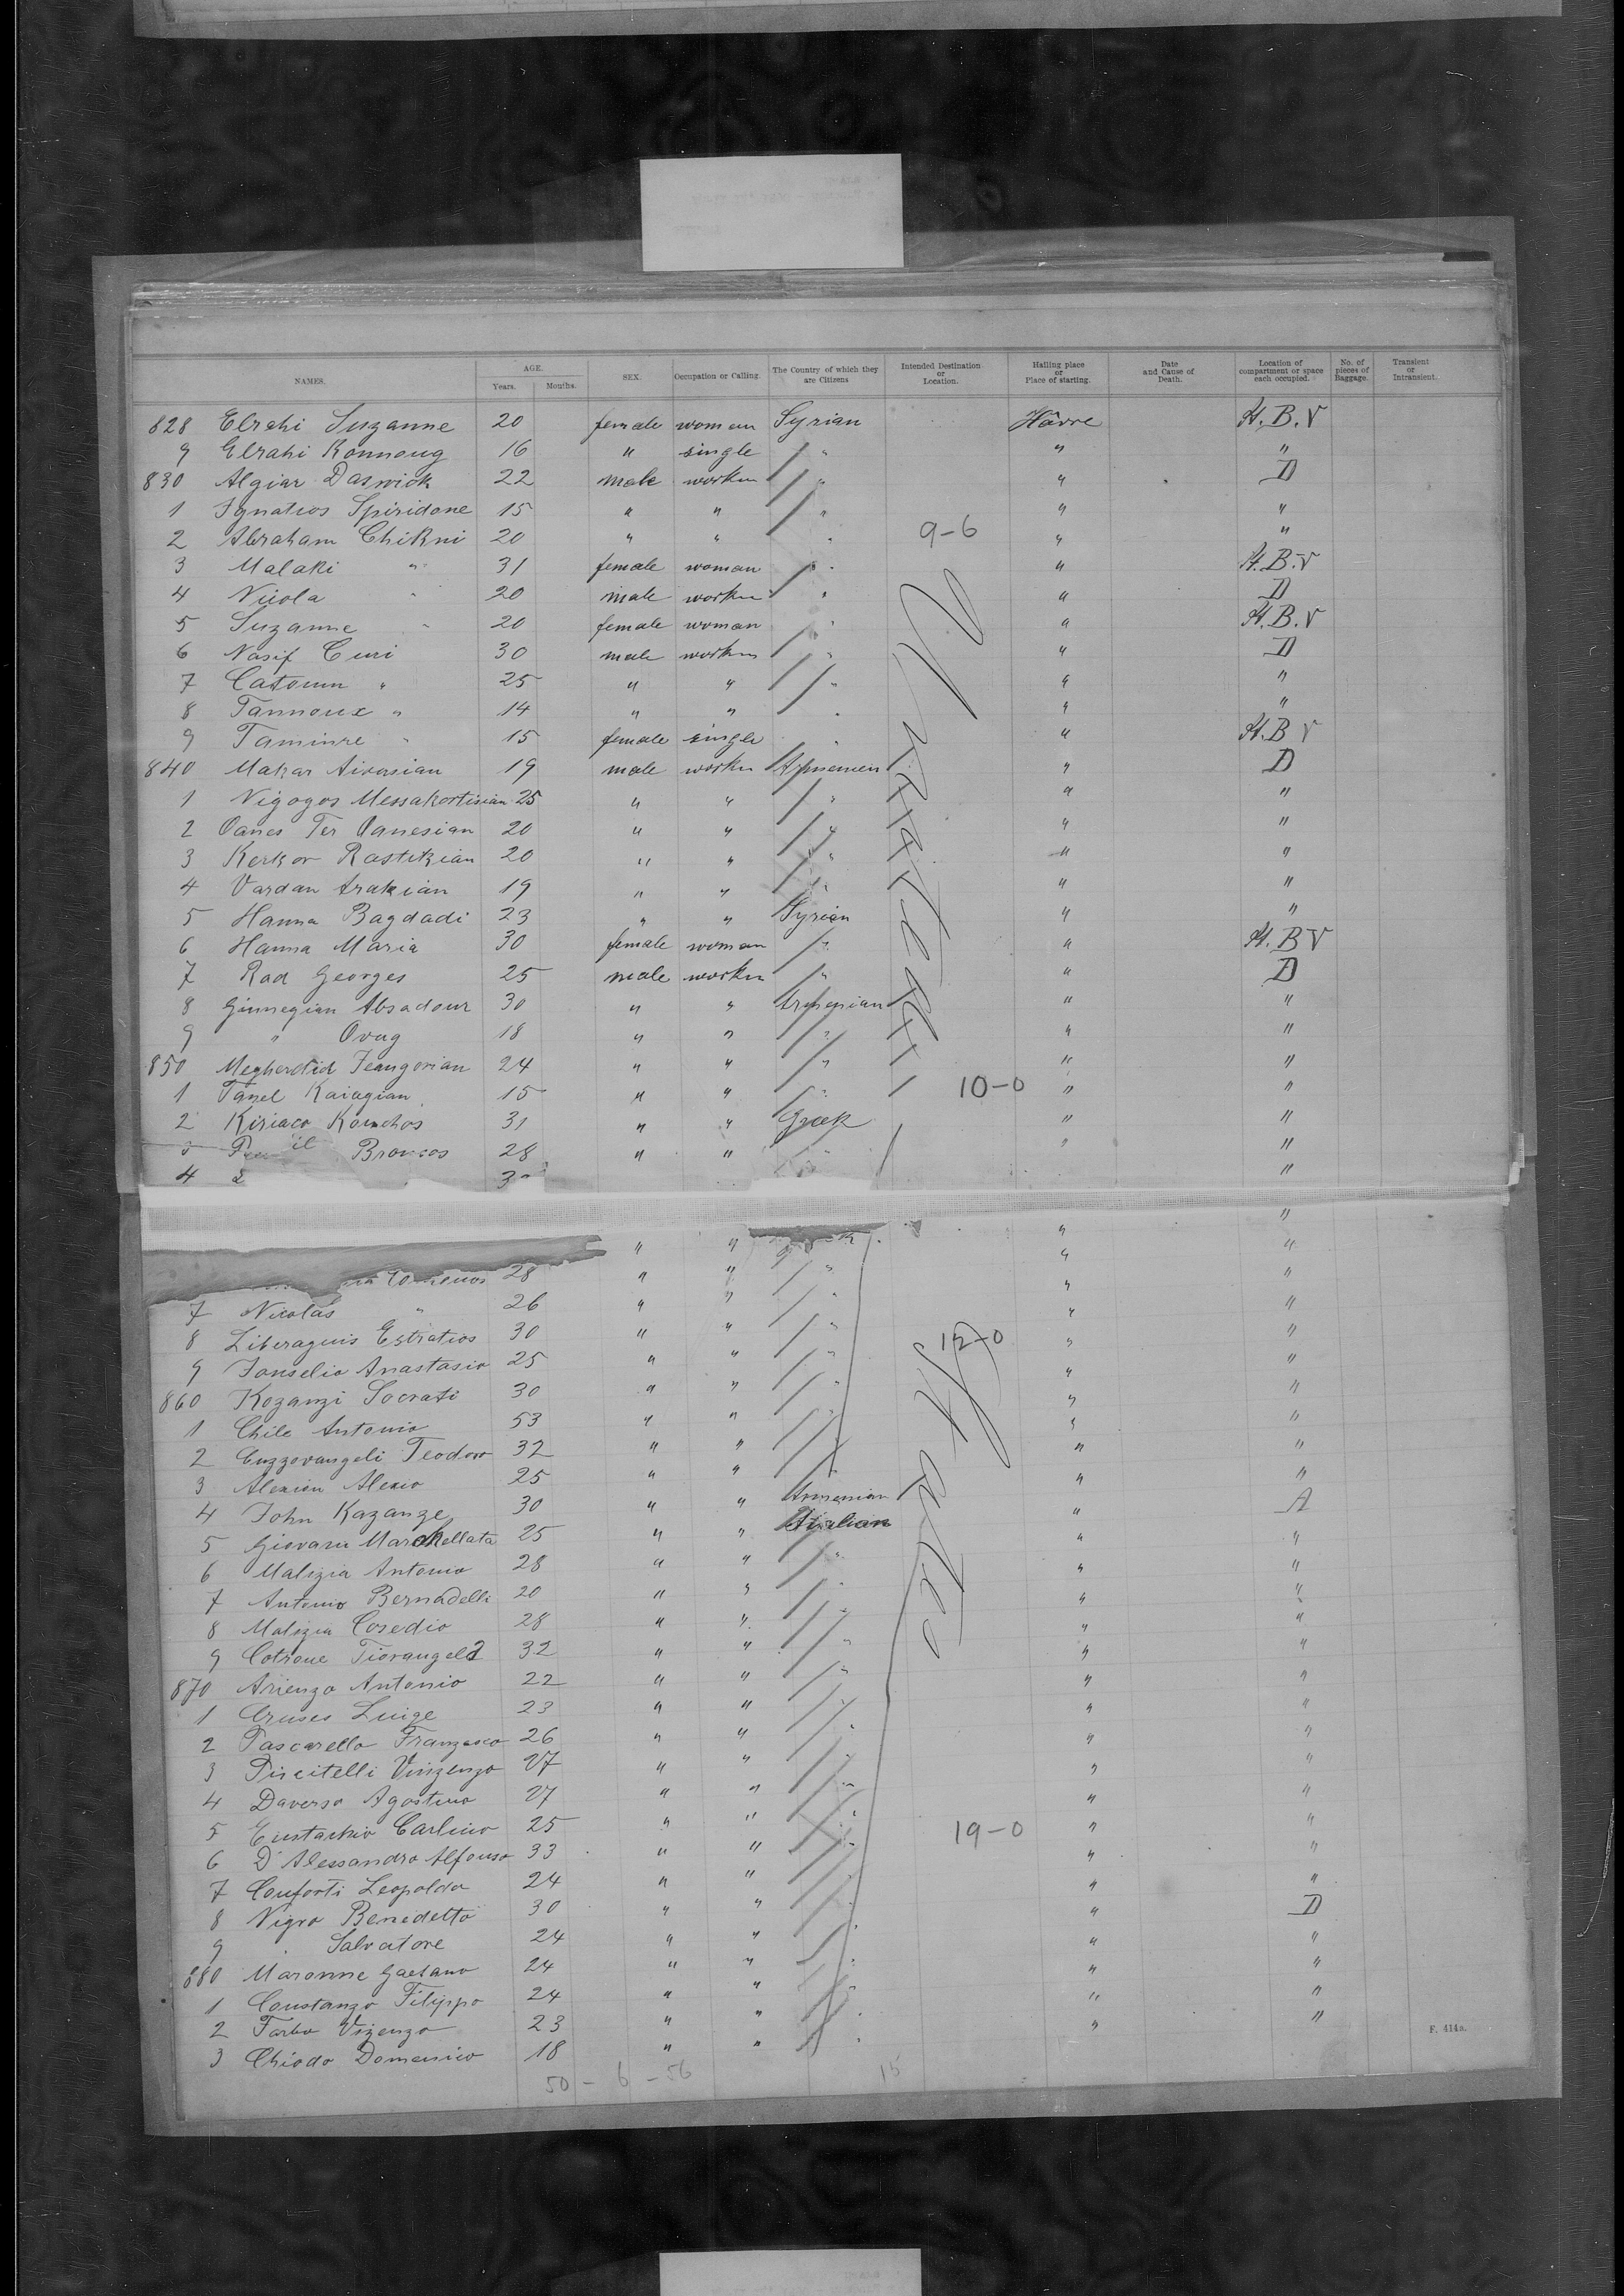 NAMES. AGE. Years. Months. SEX. Occupation or Calling. The Country of which they are Citizens Intended Destination or Location. Hailing place or Place of starting. Date and Cause of Death. Location of compartment or space each occupied. No. of pieces of Baggage. Transient or Intransient.
828 Elrahi Suzanne 20 female woman Syrian Hâvre H.B.V
9 Elrahi Konnoug 16 " single " " "
830 Algiar Daswick 22 male worker " " D
1 Ignatios Spiridone 15 " " " " "
2 Abraham Chikni 20 " " " 9-6 " "
3 Malaki " 31 female woman " " H.B.V
4 Nicola " 20 male worker " " D
5 Suzanne " 20 female woman " " H.B.V
6 Nasif Curi 30 male worker " " D
7 Catoum " 25 " " " " "
8 Tannoux " 14 " " " " "
9 Taminre " 15 female single " " H.B V
840 Makar Aivasian 19 male worker Armenien " D
1 Nigogos Messakortisian 25 " " " " "
2 Oanes Ter Oanesian 20 " " " " "
3 Kerkor Rastikian 20 " " " " "
4 Vardan Arakian 19 " " " " "
5 Hanna Bagdadi 23 " " Syrian " "
6 Hanna Maria 30 female woman " " H.B V
7 Rad Georges 25 male worker " " D
8 Ginnegian Absadour 30 " " Armenian " "
9 " Ovag 18 " " " " "
850 Megherdid 24 " " " " "
1 Tanel Kaiagian 15 " " " 10-0 " "
2 Kiriaco Komchos 31 " " Greek " "
3 Broncos 28 " " " " "
4 "
"
" " " "
28 " " " " "
7 Nicolas " 26 " " " " "
8 Liberaguis Estratios 30 " " " 12-0 " "
9 Fonselio Anastasio 25 " " " " "
860 Kozanzi Socrati 30 " " " " "
1 Chile Antonio 53 " " " " "
2 Cuzzovangeli Teodoro 32 " " " " "
3 Alexion Alexio 25 " " " "
4 John Kazanze 30 " " Armenian " A
5 Giovani Marchellata 25 " " Italian " "
6 Malizia Antonio 28 " " " " "
7 Antonio Bernadelli 20 " " " " "
8 Malizia Cosedio 28 " " " " "
9 Cotrone Tiorangelo 32 " " " " "
870 Arienzo Antonio 22 " " " " "
1 Cruses Luige 23 " " " " "
2 Pascarello Franzesco 26 " " " " "
3 Piscitelli Vinzenzo 27 " " " " "
4 Daverso Agostino 27 " " " " "
5 Eustachio Carlino 25 " " " 19-0 " "
6 D'Alessandro Alfonso 33 " " " " "
7 Conforti Leopoldo 24 " " " " "
8 Nigro Benedetto 30 " " " " D
9 " Salvatore 24 " " " " "
880 Maronne Gaetano 24 " " " " "
1 Constanzo Filippo 24 " " " " "
2 Farbo Vizenzo 23 " " " " "
3 Chiodo Domenico 18 " " "
F. 414a.
50 - 6 - 56 15